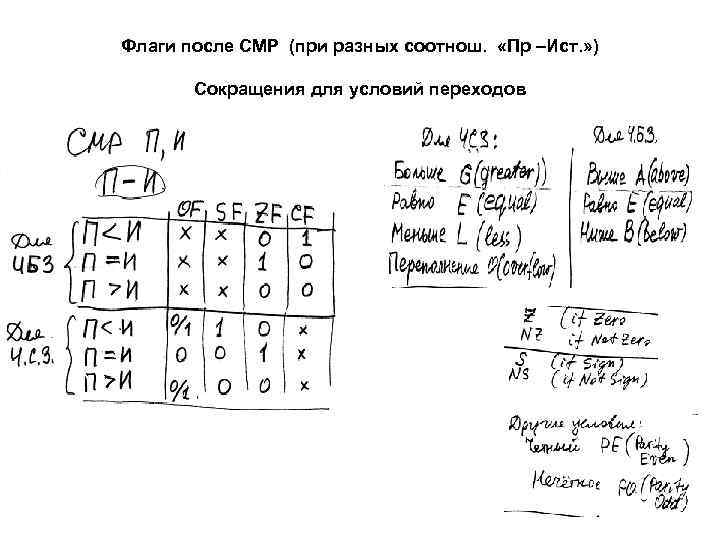 Флаги после CMP (при разных соотнош. «Пр –Ист.» )
Сокращения для условий переходов
CMP П, И
П – И
OF SF ZF CF
Для ЧБЗ
П < И x x 0 1
П = И x x 1 0
П > И x x 0 0
Для Ч.С.З.
П < И 0/1 1 0 x
П = И 0 0 1 x
П > И 0/1. 0 0 x
Для ЧСЗ:
Больше G (greater)
Равно E (equal)
Меньше L (less)
Переполнение O (overflow)
Для ЧБЗ.
Выше A (above)
Равно E (equal)
Ниже B (below)
Z (if Zero
NZ if Not Zero
S (if Sign)
NS (if Not Sign)
Другие условия:
Четный PE (Parity Even)
Нечётное PO (Parity Odd)